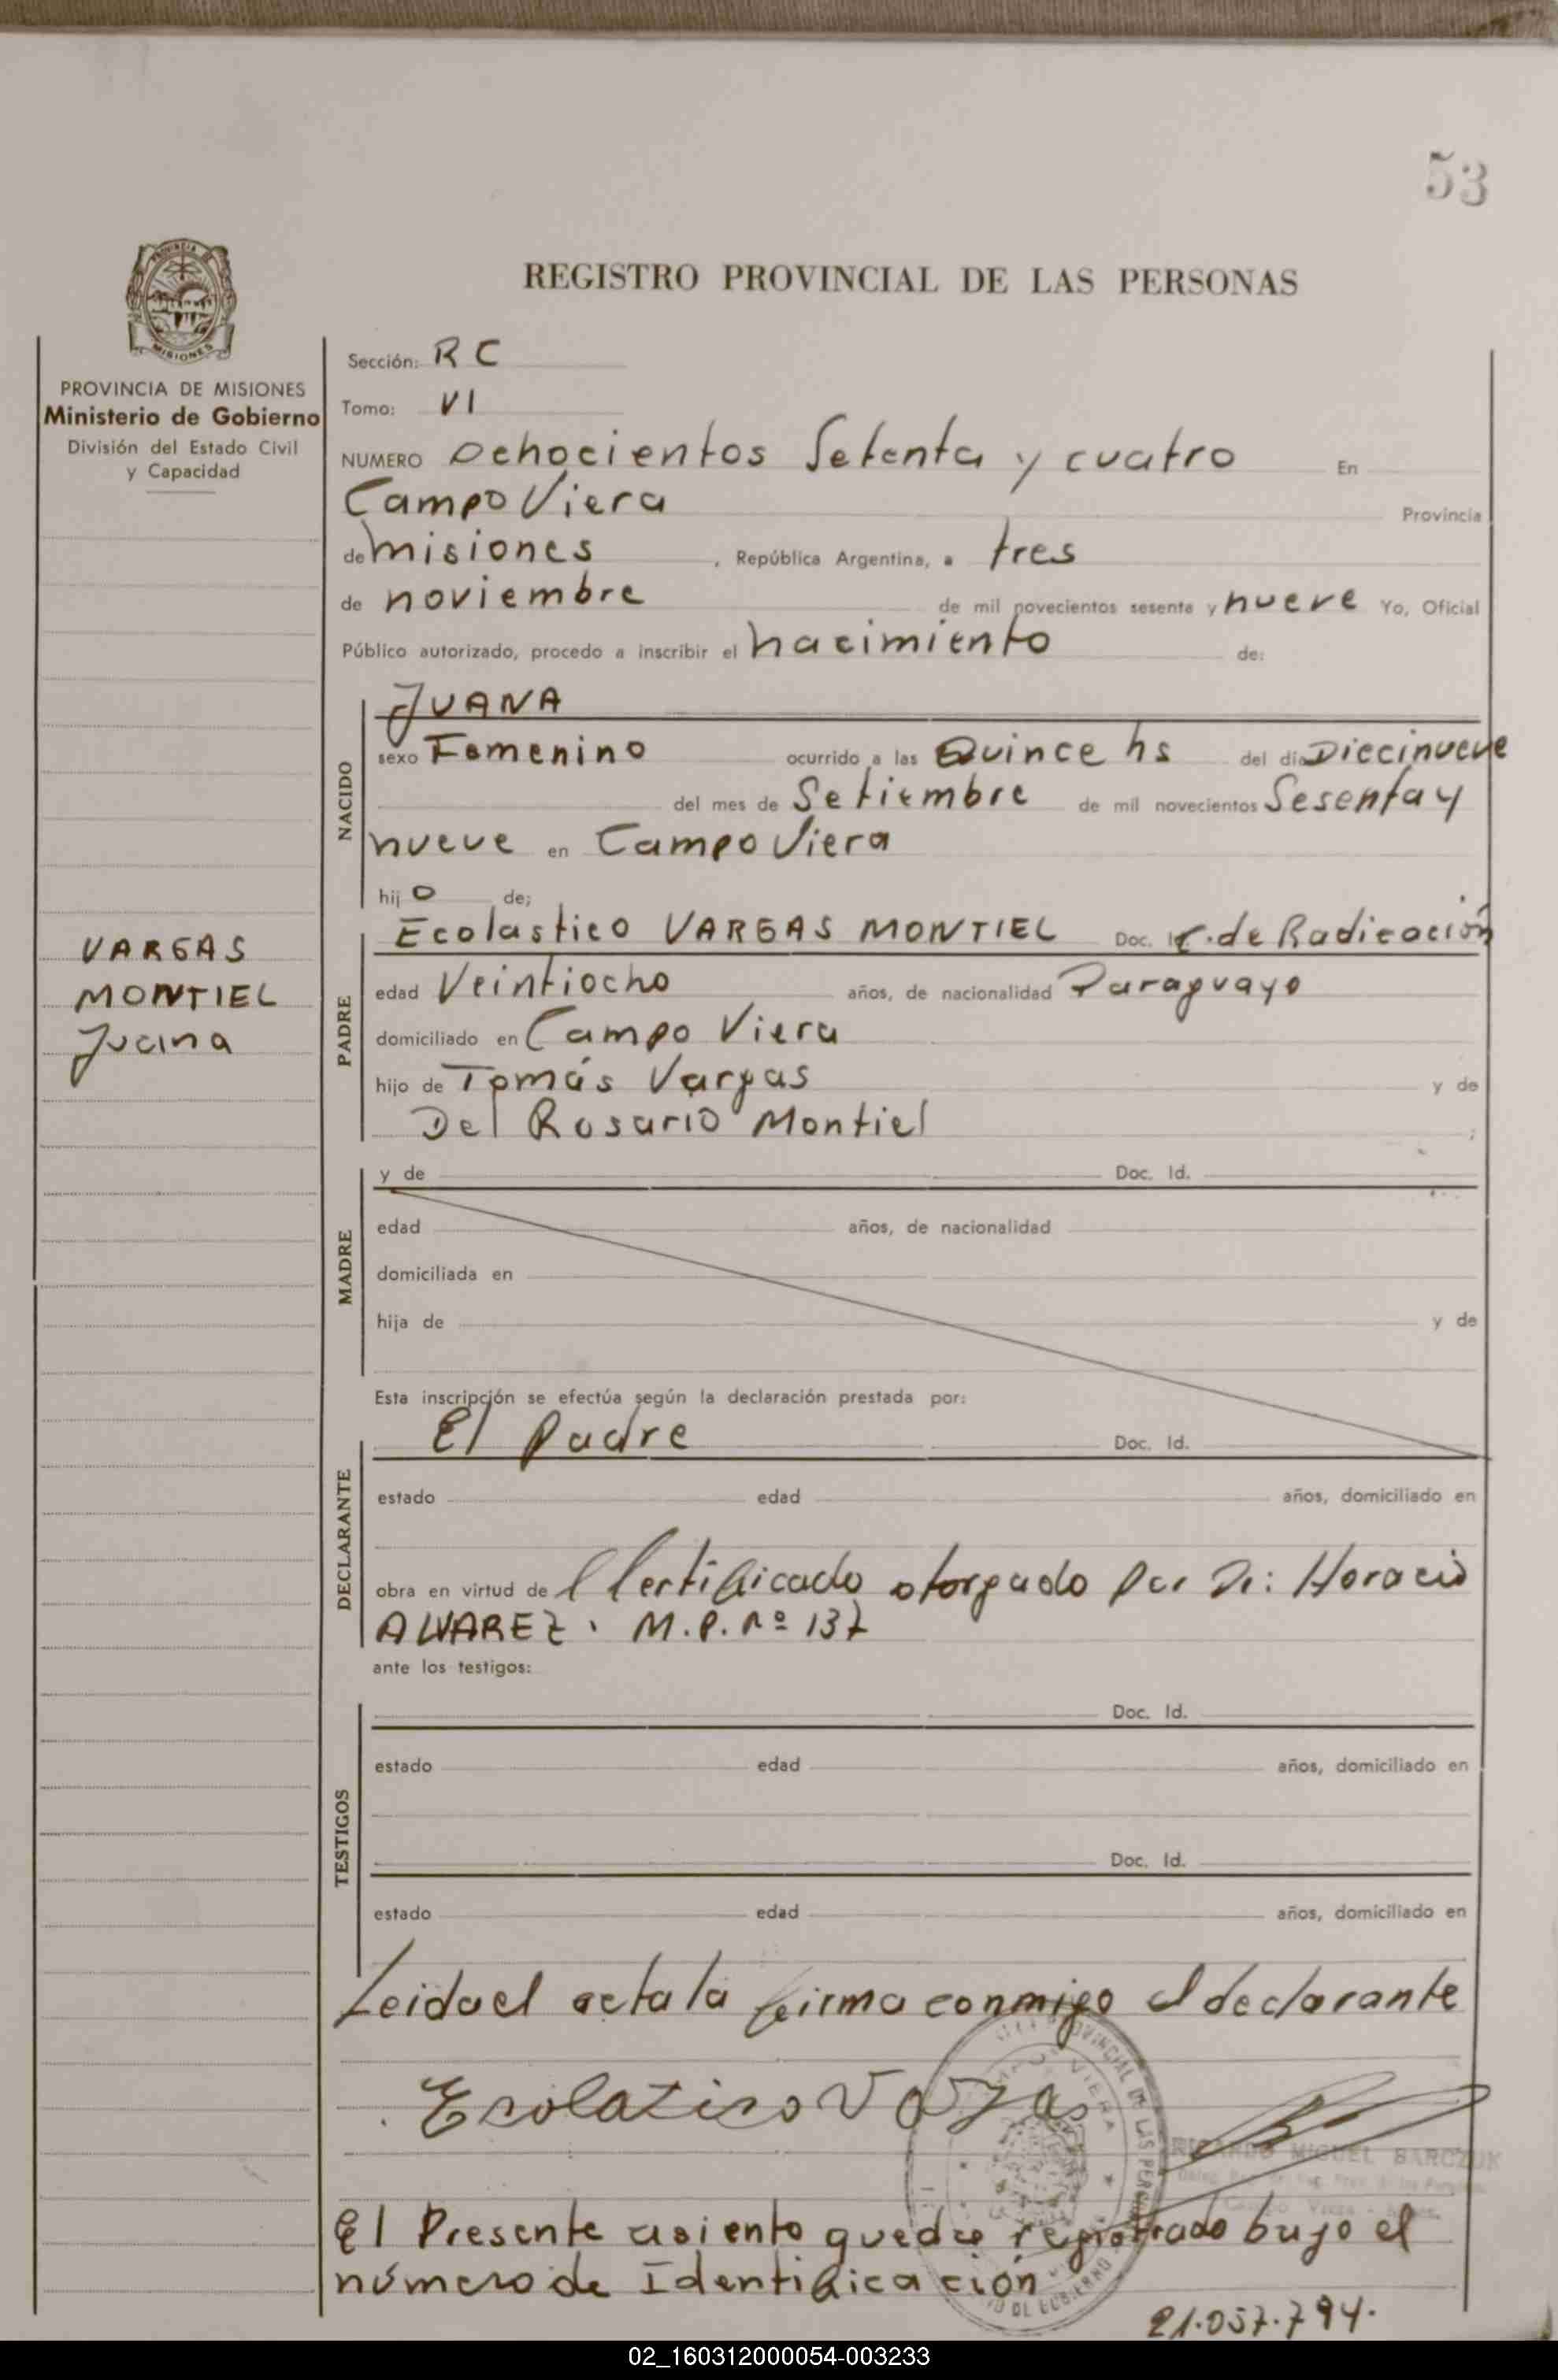 53
REGISTRO PROVINCIAL DE LAS PERSONAS
PROVINCIA DE MISIONES
Ministerio de Gobierno
División del Estado Civil
y Capacidad
VARGAS
MONTIEL
Juana
Sección: R C
Tomo: VI
NUMERO Ochocientos Setenta y cuatro En
Campo Viera Provincia
de misiones , República Argentina, a tres
de noviembre de mil novecientos sesenta y nueve Yo, Oficial
Público autorizado, procedo a inscribir el nacimiento de:
NACIDO
JUANA
sexo Femenino ocurrido a las Quince hs del día Diecinueve
del mes de Setiembre de mil novecientos Sesenta y
nueve en Campo Viera
hij o de;
PADRE
Ecolastico VARGAS MONTIEL Doc. C. de Radicación
edad Veintiocho años, de nacionalidad Paraguayo
domiciliado en Campo Viera
hijo de Tomás Vargas y de
Del Rosario Montiel ;
MADRE
y de Doc. Id.
edad años, de nacionalidad
domiciliada en
hija de y de
Esta inscripción se efectúa según la declaración prestada por:
DECLARANTE
El Padre Doc. Id.
estado edad años, domiciliado en
obra en virtud de l Certificado otorgado Por Dr: Horacio
ALVAREZ. M.P. nº 137
ante los testigos:
TESTIGOS
Doc. Id.
estado edad años, domiciliado en
Doc. Id.
estado edad años, domiciliado en
Leida el acta la firma conmigo el declarante
Ecolatico Vargas
RICARDO MIGUEL BARCZUK
El Presente asiento queda registrado bajo el
número de Identificación
21.057.794.
02_160312000054-003233